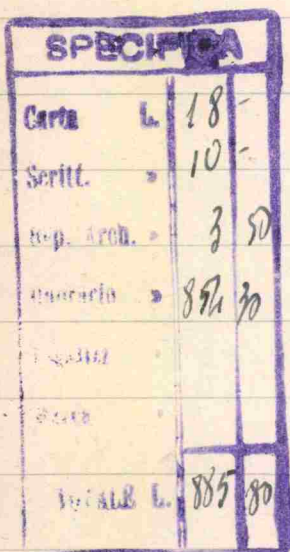 SPECIFICA
Carta L. 18 -
Scritt. » 10 -
Rep. Arch. » 3 50
Onorario » 854 30
TOTALE L. 885 80